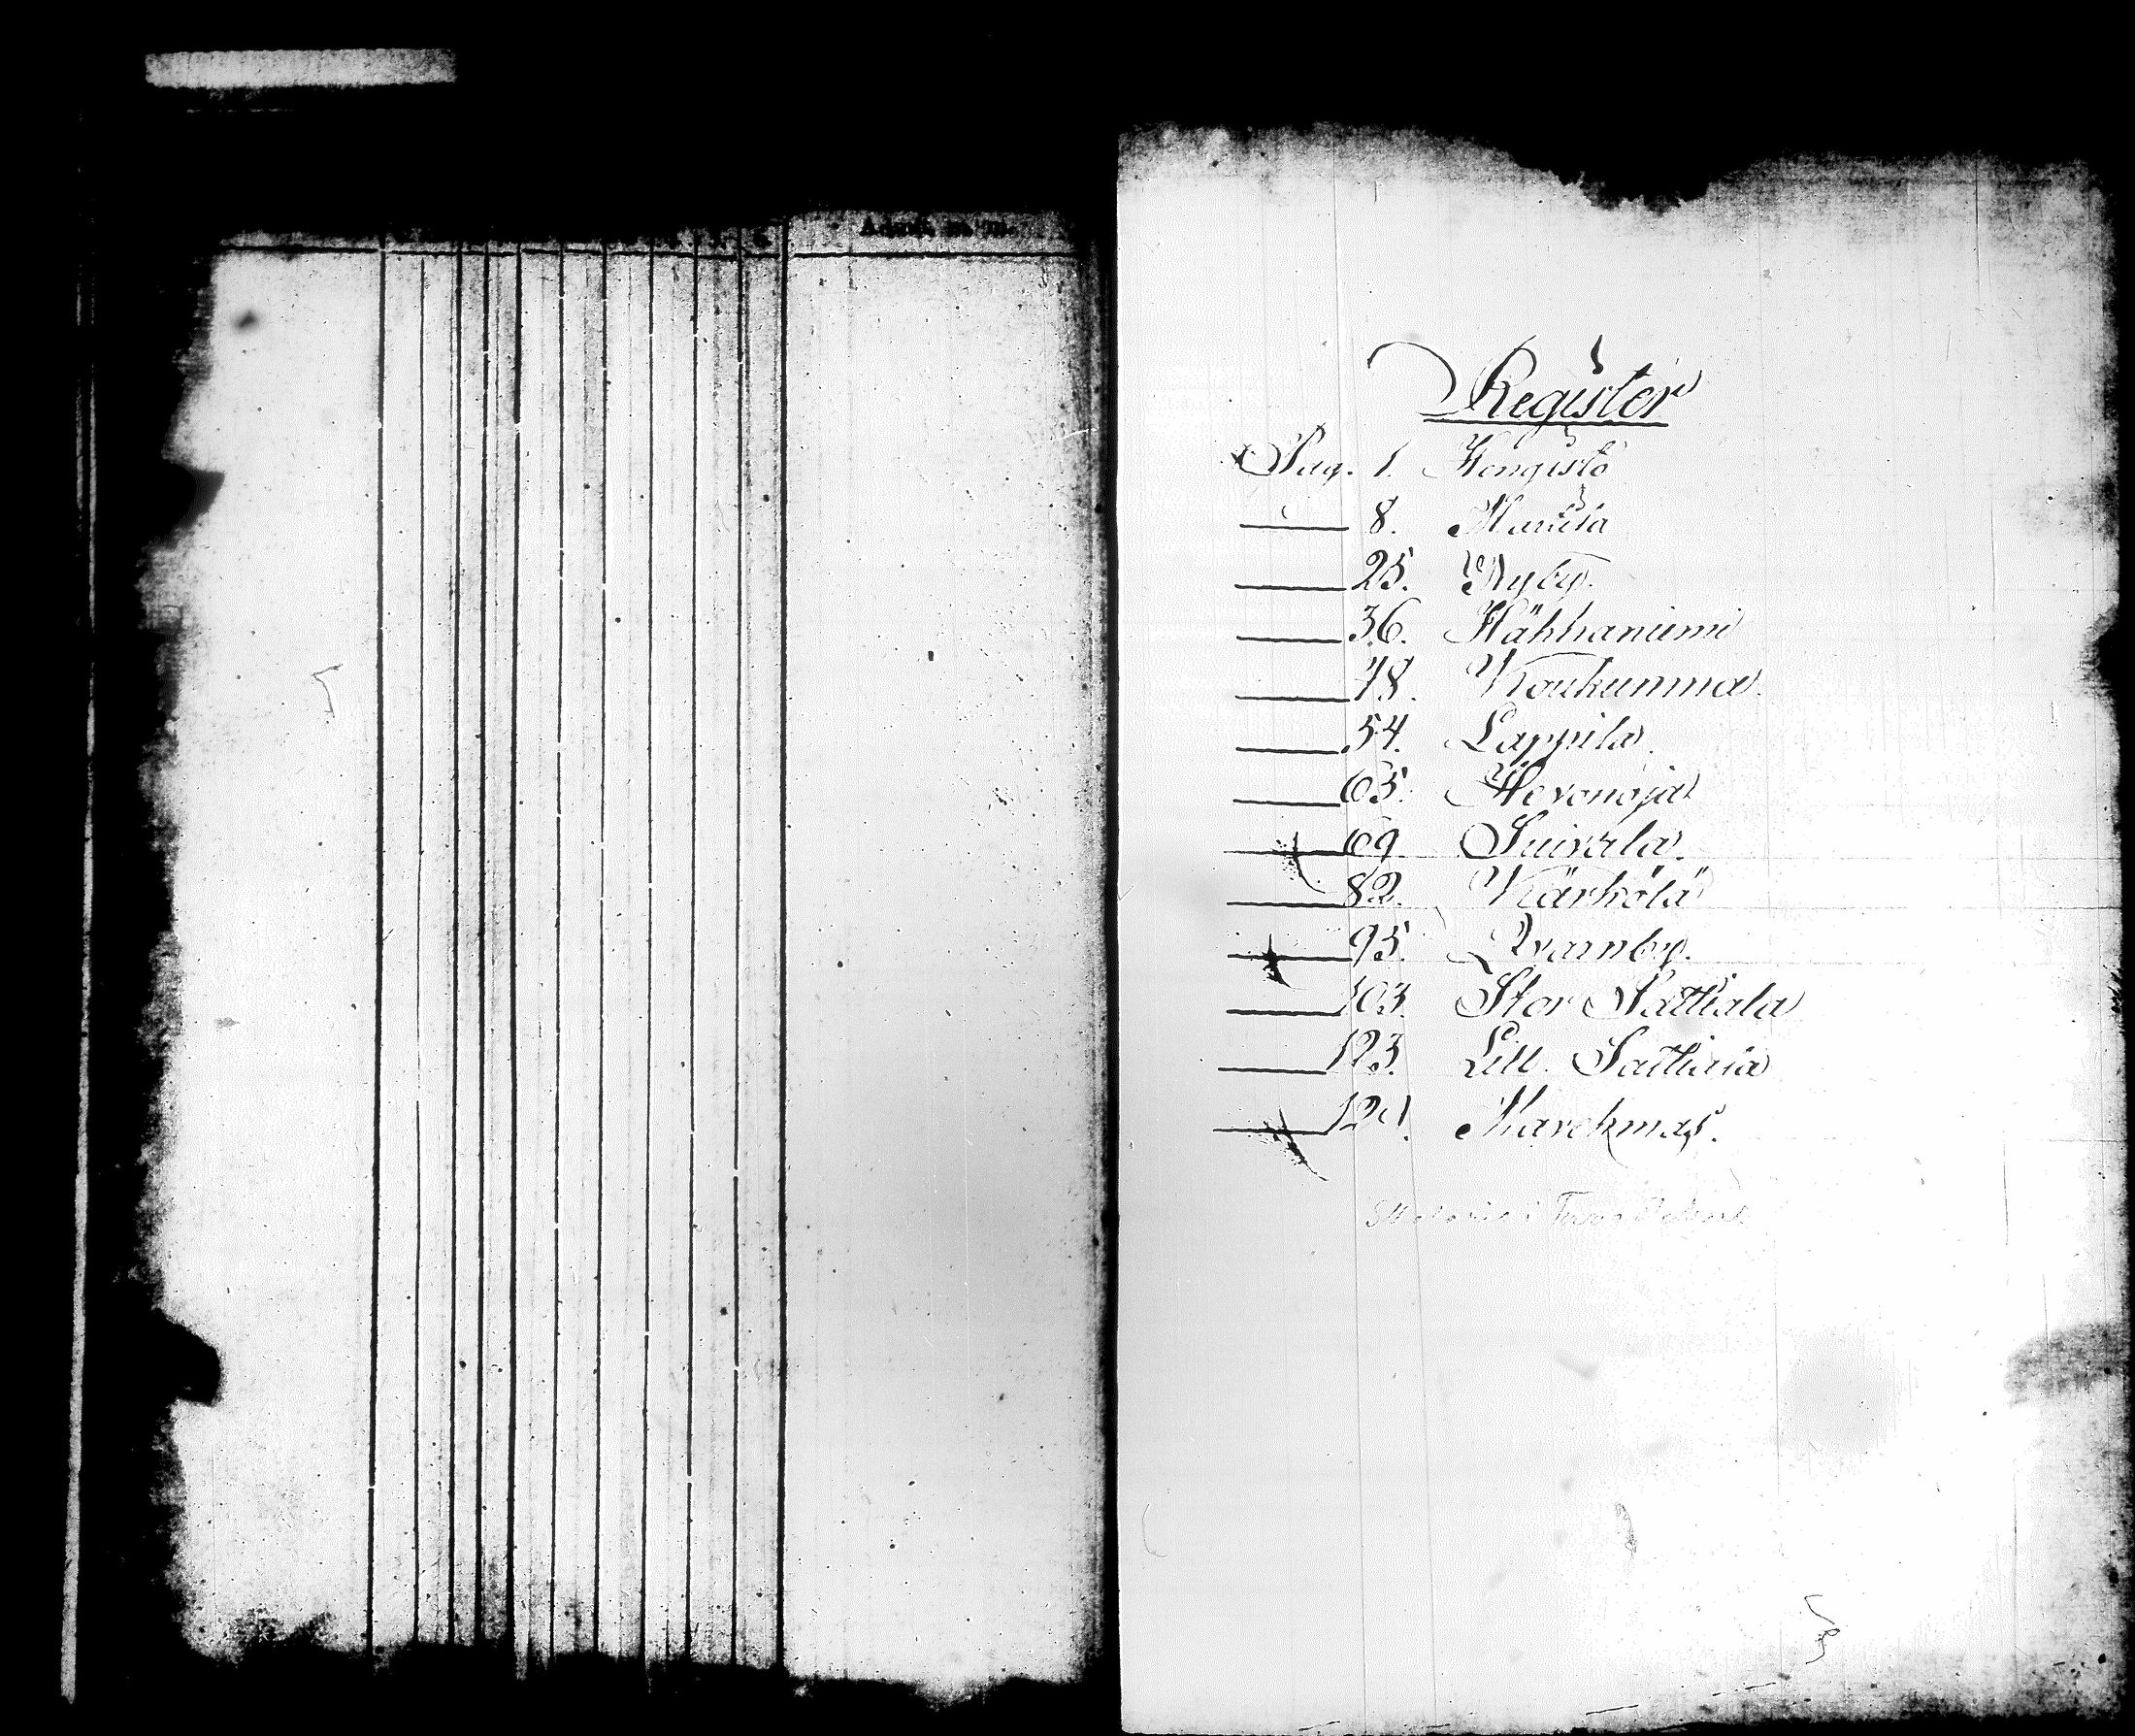 Register
Pag. 1. Hongisto
8. Mattila
25. Nyby.
36. Hähhäniemi
48. Koukunmaa.
54. Lappila.
65. Hevonoja
69. Suivala.
82. Kärkölä
95. Qvarnby.
103. Stor Sattiala
123. Lill. Sattiala
129. Marckmas.